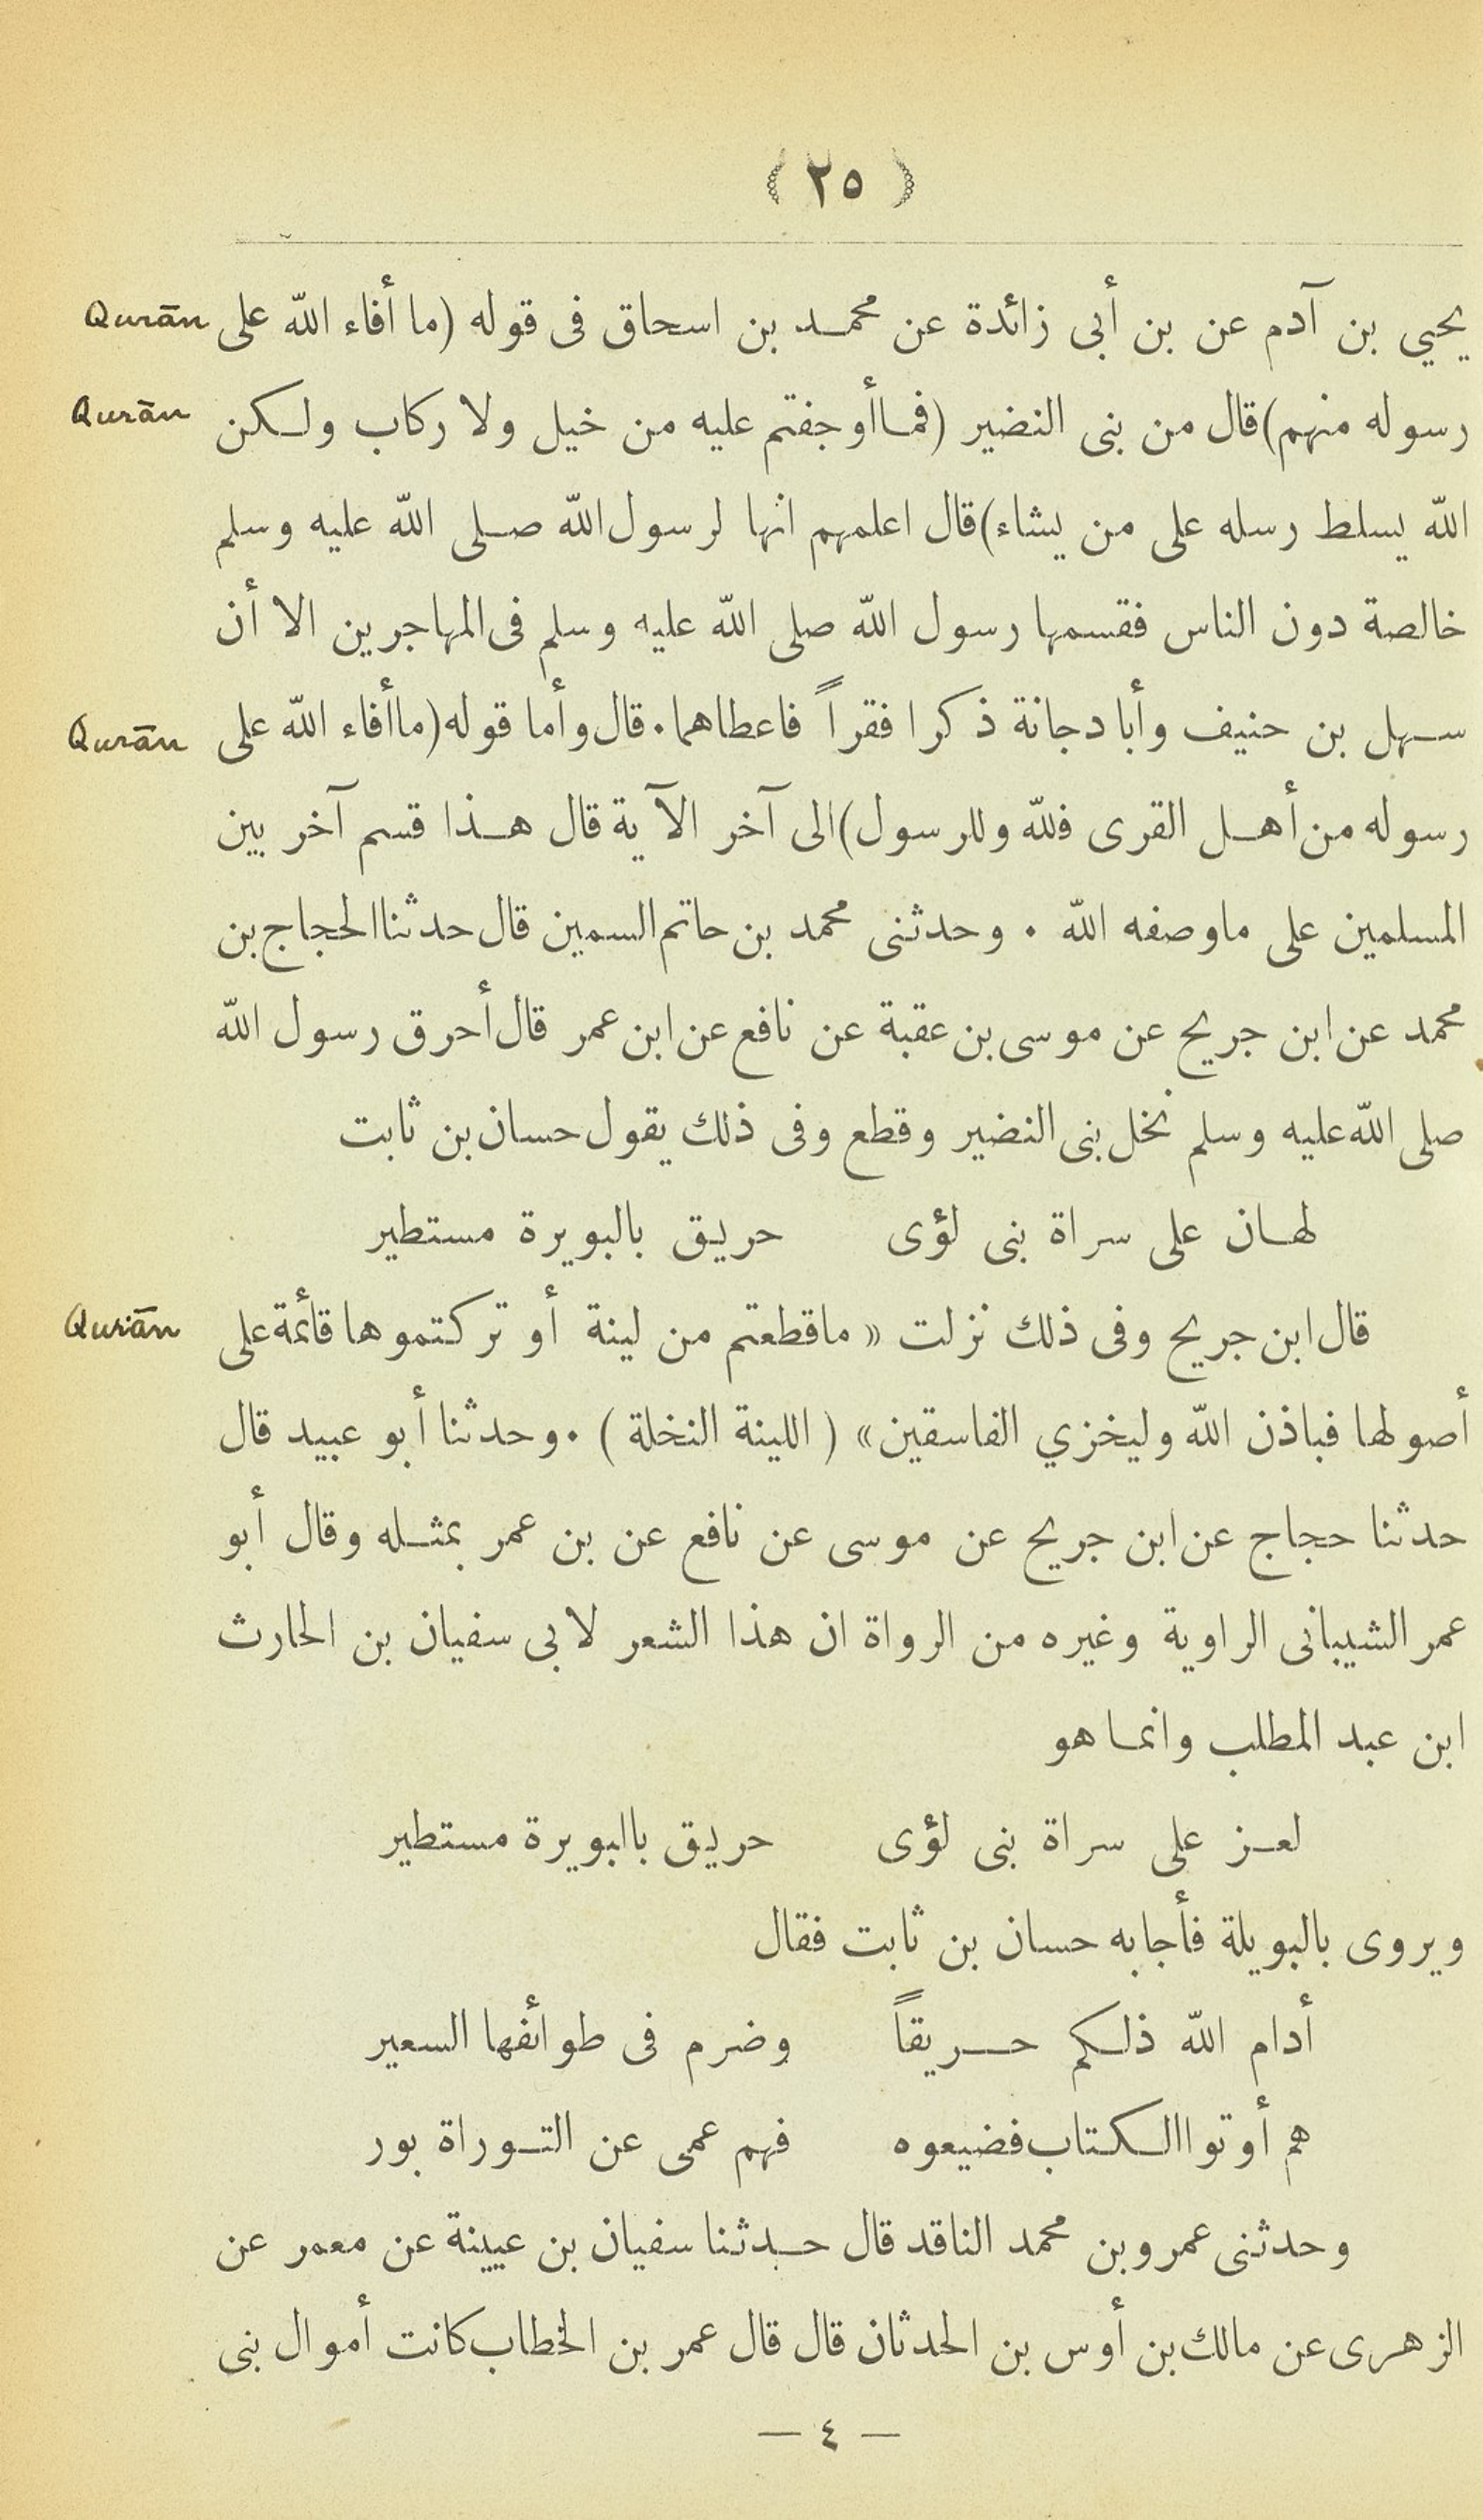 ﴿ ٢٥ ﴾
يحيي بن آدم عن بن أبى زائدة عن محمد بن اسحاق فى قوله (ما أفاء الله على Qurān
رسوله منهم) قال من بنى النضير (فما أوجفتم عليه من خيل ولا ركاب ولكن Qurān
الله يسلط رسله على من يشاء) قال اعلمهم انها لرسول الله صلى الله عليه وسلم
خالصة دون الناس فقسمها رسول الله صلى الله عليه وسلم فى المهاجرين الا أن
سهل بن حنيف وأبا دجانة ذكرا فقراً فاعطاهما . قال وأما قوله (ما أفاء الله على Qurān
رسوله من أهل القرى فلله وللرسول) الى آخر الآية قال هذا قسم آخر بين
المسلمين على ما وصفه الله . وحدثنى محمد بن حاتم السمين قال حدثنا الحجاج بن
محمد عن ابن جريج عن موسى بن عقبة عن نافع عن ابن عمر قال أحرق رسول الله
صلى الله عليه وسلم نخل بنى النضير وقطع وفى ذلك يقول حسان بن ثابت
لهان على سراة بنى لؤى حريق بالبويرة مستطير
قال ابن جريج وفى ذلك نزلت « ما قطعتم من لينة أو تركتموها قائمة على Qurān
أصولها فباذن الله وليخزي الفاسقين » ( اللينة النخلة ) . وحدثنا أبو عبيد قال
حدثنا حجاج عن ابن جريج عن موسى عن نافع عن بن عمر بمثله وقال أبو
عمر الشيبانى الراوية وغيره من الرواة ان هذا الشعر لابى سفيان بن الحارث
ابن عبد المطلب وانما هو
لعز على سراة بنى لؤى حريق بالبويرة مستطير
ويروى بالبويلة فأجابه حسان بن ثابت فقال
أدام الله ذلكم حريقاً وضرم فى طوائفها السعير
هم أوتوا الكتاب فضيعوه فهم عمى عن التوراة بور
وحدثنى عمرو بن محمد الناقد قال حدثنا سفيان بن عيينة عن معمر عن
الزهرى عن مالك بن أوس بن الحدثان قال قال عمر بن الخطاب كانت أموال بنى
— ٤ —